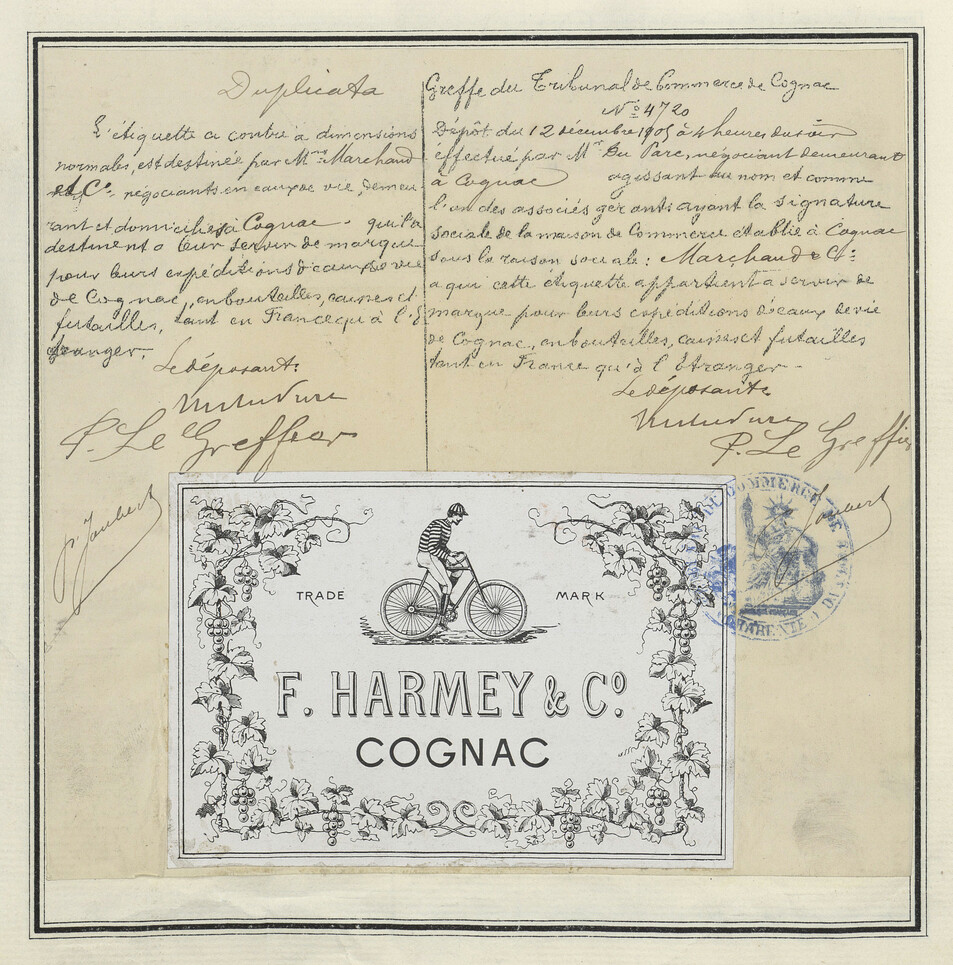 Duplicata
L'étiquette ci contre à dimensions
normales, est destinée par Mrs Marchand
et Cie négociants en eaux de vie, demeu
rant et domiciliés à Cognac qui la
destinent à leur servir de marque
pour leurs expéditions d'eaux de vie
de Cognac, en bouteilles, caisses et
futailles, tant en France qu'à l'E
tranger.
Le déposant:
P. Le Greffier
P. Joubert
Greffe du Tribunal de Commerce de Cognac
No 4720
Dépôt du 12 décembre 1905 à 4 heures du soir
éffectué par Mr Du Parc, négociant demeurant
à Cognac agissant au nom et comme
l'un des associés gérants ayant la signature
sociale de la maison de Commerce établie à Cognac
sous la raison sociale: Marchand & Cie
à qui cette étiquette appartient à servir de
marque pour leurs expéditions d'eaux de vie
de Cognac, en bouteilles, caisses et futailles
tant en France qu'à l'étranger.
Le déposant:
P. Le Greffier
Joubert
TRADE MARK
F. HARMEY & Co.
COGNAC
DE COMMERCE DE
CHARENTE